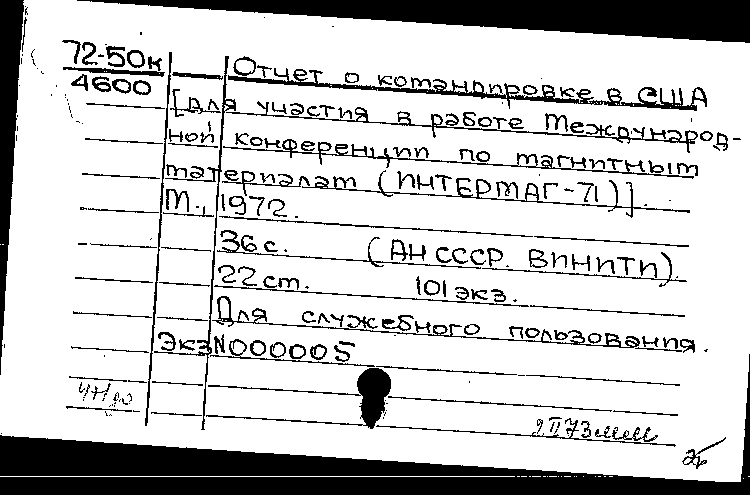 72-50к
4600
Отчет о командировке в США
[для участия в работе Международ-
ной конференции по магнитным
материалам (ИНТЕРМАГ-71)].
М., 1972.
36 с. (АН СССР. ВИНИТИ).
22 см. 101 экз.
Для служебного пользования.
Экз N000005